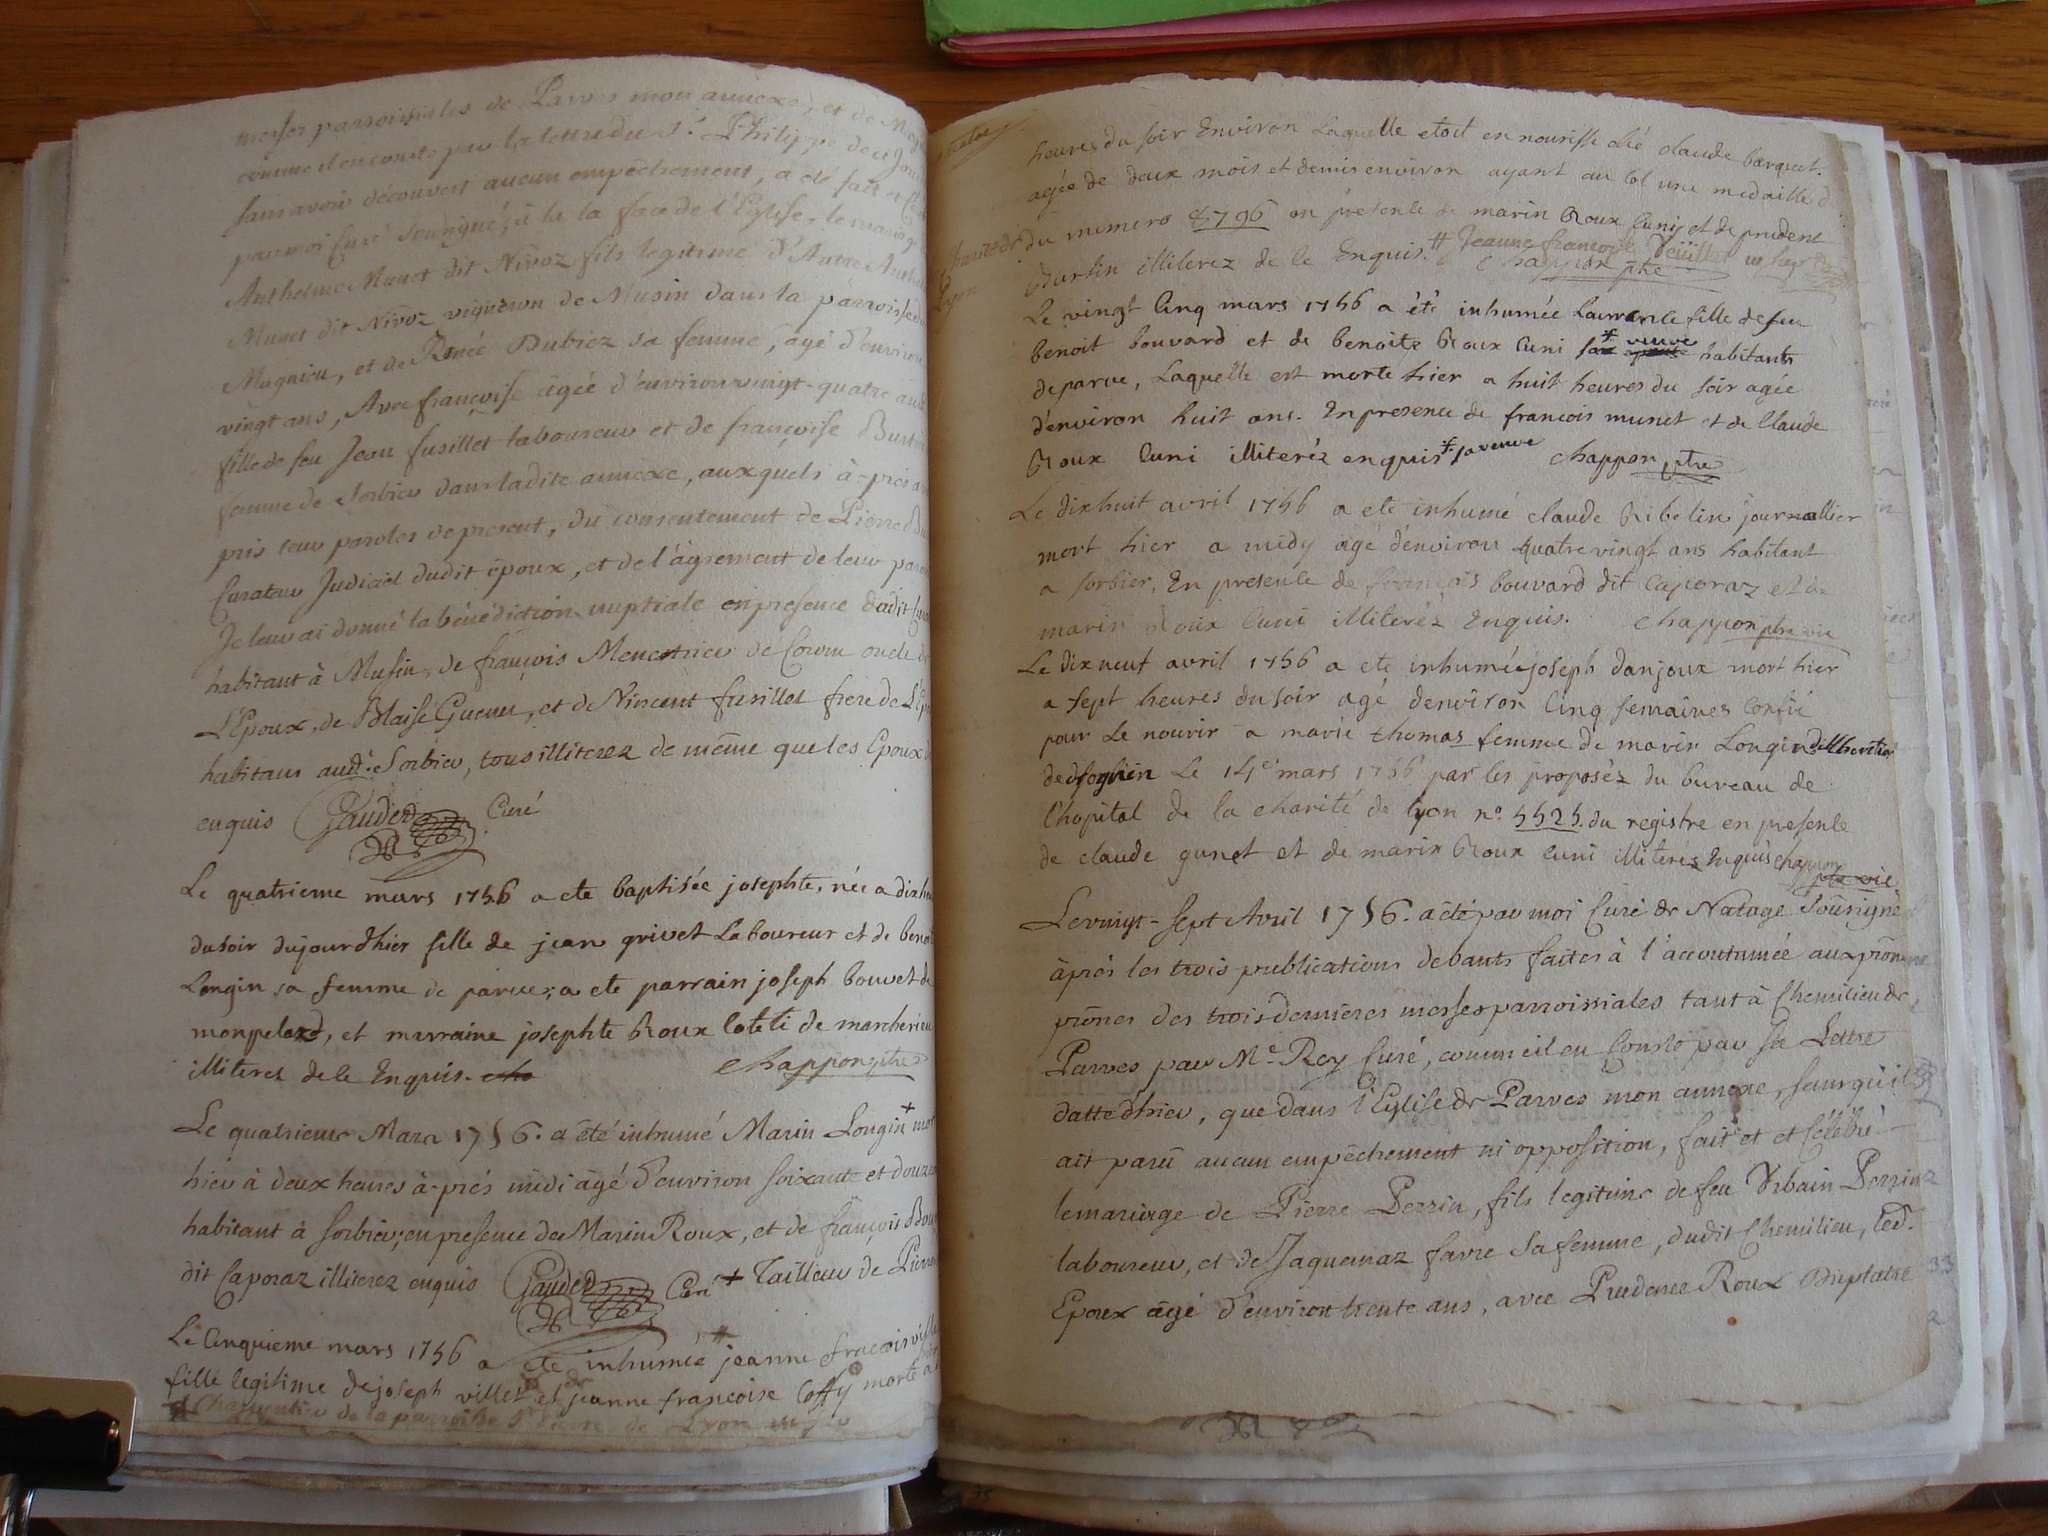 messes parroissiales de Parves mon annexe, et de
comme il en conste par la lettre du Sr. Philippe
sans avoir découvert aucun empêchement, a été fait et
par moi Curé soussigné, à la face de l'Eglise, le mariage
Anthelme Munet dit Nivoz fils legitime d'Autre
Munet dit Nivoz vigneron de Musin dans la parroisse
Magnieu, et de Renée Dubiez sa femme, agé d'environ
vingt ans, Avec françoise agée d'environ vingt-quatre ans
fille de feu Jean fusillet laboureur et de françoise
femme de Sorbieu dans ladite annexe, auxquels à-près
pris leur paroles de present, du consentement de Pierre
Curateur Judiciel dudit époux, et de l'agrement de leur
Je leur ai donné la bénédiction nuptiale en presence dudit
habitant à Musin, de françois Menestrier de oncle de
L'Epoux, de Blaise Guenu, et de Vincent fusillet frere de
habitans audt. Sorbieu, tous illiterez de même que les Epoux
enquis Gauded Curé
Le quatrieme mars 1756 a ete baptisée josephte, née a dix
du soir du jourdhier fille de jean grivet Laboureur et de
Longin sa femme de parve; a ete parrain joseph bouvet de
monpelard, et marraine josephte Roux loteti de marcherieu
illiteres de le Enquis. cha chappon ptre
Le quatrieme Mars 1756. a été inhumé Marin Longin +
hier à deux heures à-prés midi âgé d'environ soixante et douze
habitant à Sorbieu; en presence de Marin Roux, et de françois
dit Caporaz illiterez enquis Gauded Curé + Tailleur de Pierre
Le Cinquieme mars 1756 a ete inhumée # jeanne
fille legitime de joseph villet et de jeanne francoise morte
# Charpentier de la parroisse de Lyon
heures du soir Environ Laquelle etoit en nourisse ché claude barquet.
agée de deux mois et demis environ ayant au col une medaille
Charité de du numero 8796 en presence de marin Roux Cuni et de prudent
Lyon Burtin illiterez de le Enquis. # Jeanne françoise
chappon ptre
Le vingt Cinq mars 1756 a été inhumée Laurence fille de feu
benoit bouvard et de benoite Roux Cuni * veuve habitants
de parve, Laquelle est morte hier a huit heures du soir agée
d'environ huit ans. En presence de francois munet et de Claude
Roux Cuni illiteréz enquis * sa veuve chappon ptre
Le dixhuit avril 1756 a ete inhumé claude Ribelin journallier
mort hier a midy agé d'environ quatre vingt ans habitant
a sorbier, En presence de françois bouvard dit Caporaz et de
marin Roux Cuni illiteréz Enquis. chappon ptre vic
Le dix neuf avril 1756 a ete inhumée joseph danjoux mort hier
a sept heures du soir agé denviron Cinq semaines Confié
pour Le nourir a marie thomas femme de marin Longin
Le 14e mars 1756 par les proposéz du bureau de
l'hopital de la charité de lyon no 5525. du registre en presence
de claude gunet et de marin Roux Cuni illiterés Enquis chappon
ptre vic
Le vingt-Sept Avril 1756. a été par moi Curé de Natage Soûsigné
àprés les trois publications de bants faites à l'accoutumée aux prônes
prônes des trois dernieres messes parroissiales tant à Chemilieu de
Parves par Me. Rey Curé, comme il en Conste par sa Lettre
datte d'hier, que dans l'Eglise de Parves mon annexe, sans qu'il
ait parû aucun empêchement ni opposition, fait et et Célébré
le mariage de Pierre Perrin, fils legitime de feu Urbain Perrin
laboureur, et de Jaquemaz favre sa femme, dudit Chemilieu, led.
Epoux âgé d'environ trente ans, avec Prudence Roux